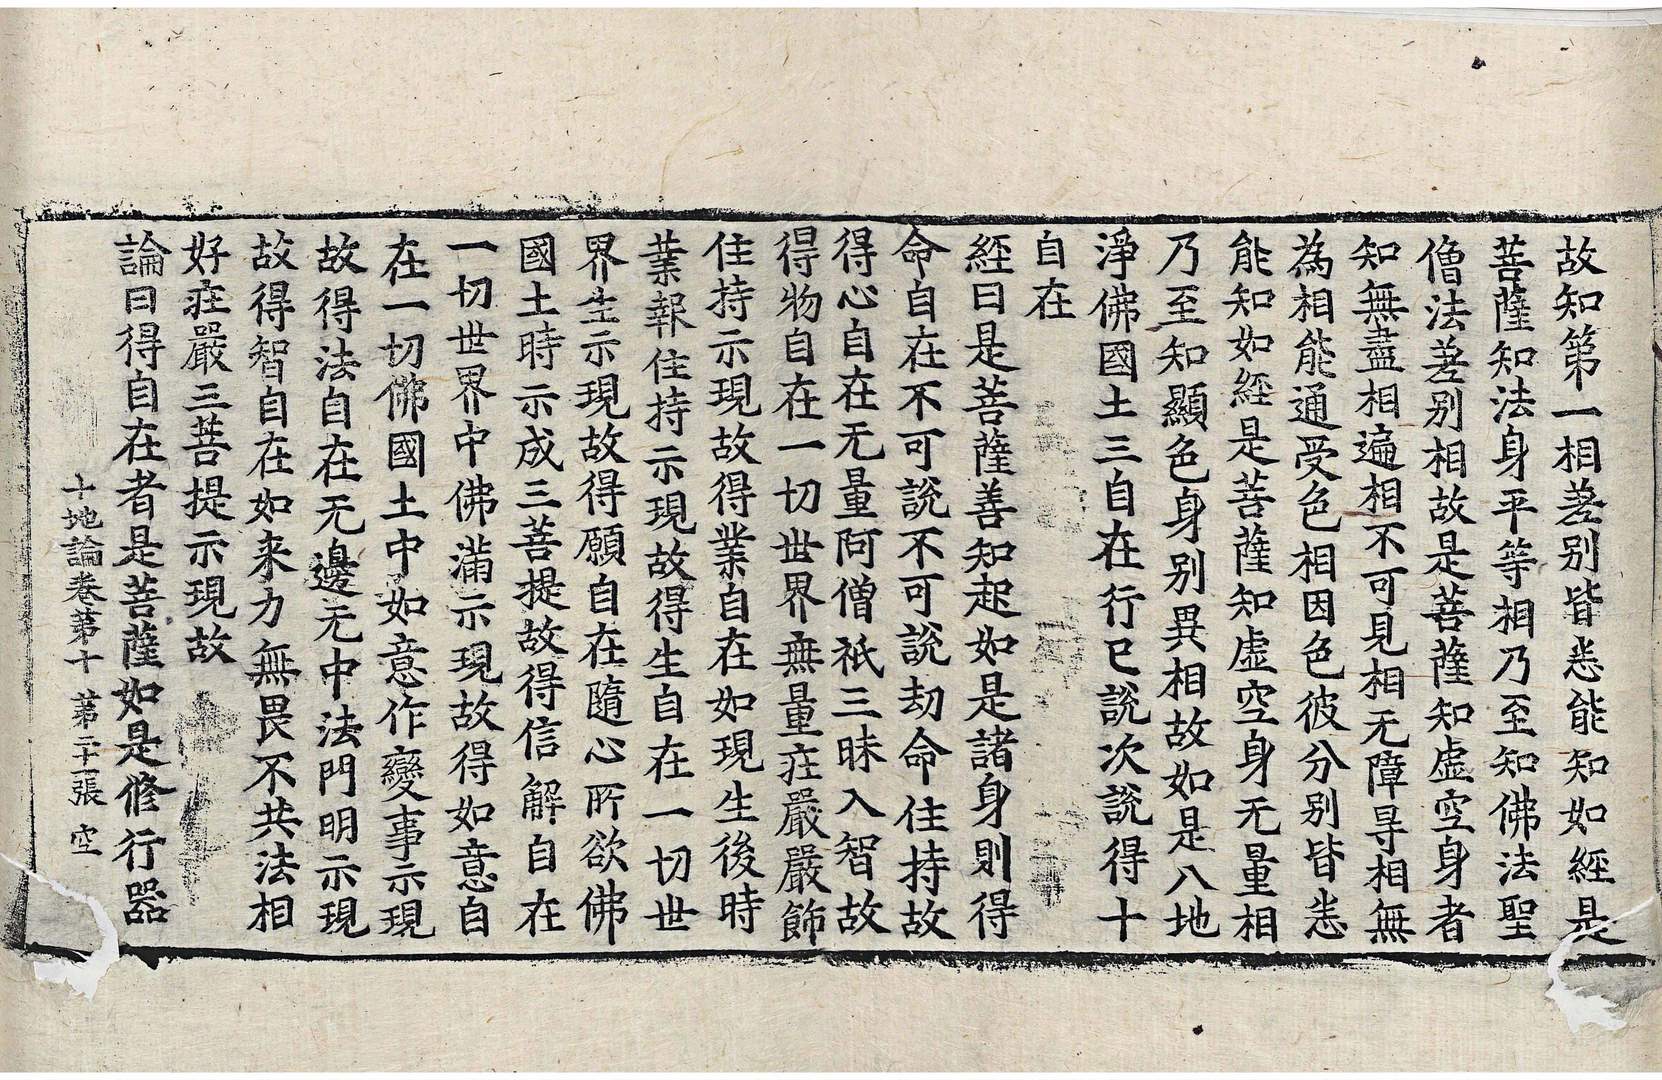 故知第一相差别皆悉能知如經是
菩薩知法身平等相乃至知佛法聖
僧法差别相故是菩薩知虛空身者
知無盡相遍相不可見相无障㝵相無
為相能通受色相因色彼分别皆悉
能知如經是菩薩知虛空身无量相
乃至知顯色身别異相故如是八地
淨佛國土三自在行已說次說得十
自在
經曰是菩薩善知起如是諸身則得
命自在不可說不可說劫命住持故
得心自在无量阿僧祇三昧入智故
得物自在一切世界無量莊嚴嚴飾
住持示現故得業自在如現生後時
業報住持示現故得生自在一切世
界生示現故得願自在隨心所欲佛
國土時示成三菩提故得信解自在
一切世界中佛滿示現故得如意自
在一切佛國土中如意作變事示現
故得法自在无邊无中法門明示現
故得智自在如来力無畏不共法相
好莊嚴三菩提示現故
論曰得自在者是菩薩如是修行器
十地論卷第十 第二十張 空